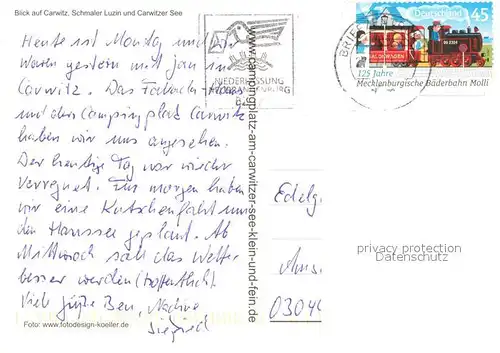 Blick auf Carwitz, Schmaler Luzin und Carwitzer See
Heute ist Montag und wir
waren gestern mit Jan in
Carwitz. Das Fallada-Haus
und den Campingplatz Carwitz
haben wir uns angesehen.
Der heutige Tag war wieder
verregnet. Für morgen haben
wir eine Kutschenfahrt um
den Haussee geplant. Ab
Mittwoch soll das Wetter
besser werden (hoffentlich).
Viele Grüße
Siegfried
Foto: www.fotodesign-koeller.de
NIEDERLASSUNG
www.campingplatz-am-carwitzer-see-klein-und-fein.de
BRIEF
Deutschland 45
125 Jahre
Mecklenburgische Bäderbahn Molli
privacy protection
Datenschutz
0304